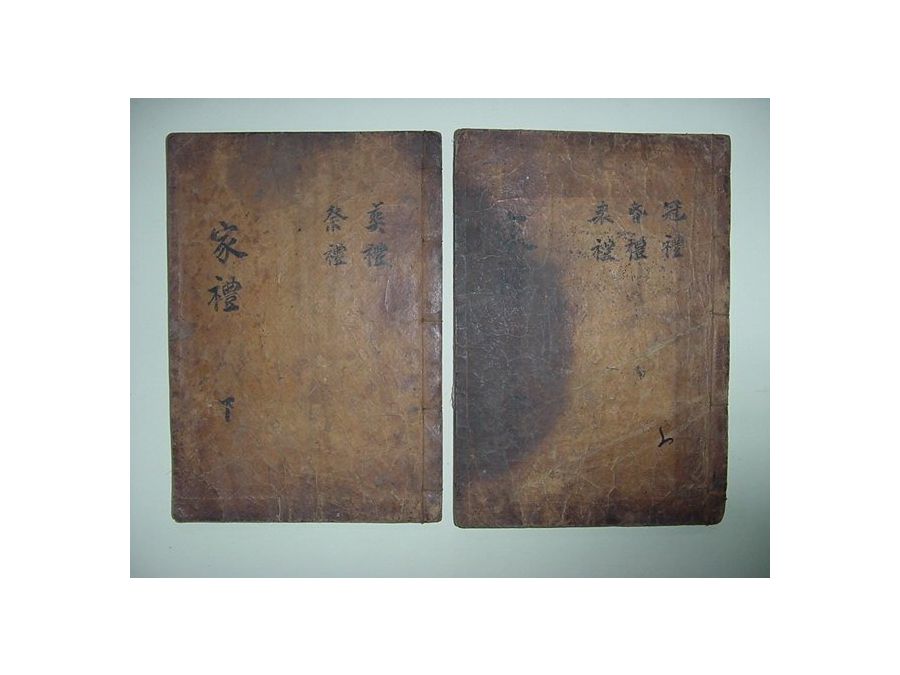 冠禮
昏禮
喪禮
家
上
葬禮
祭禮
家禮
下